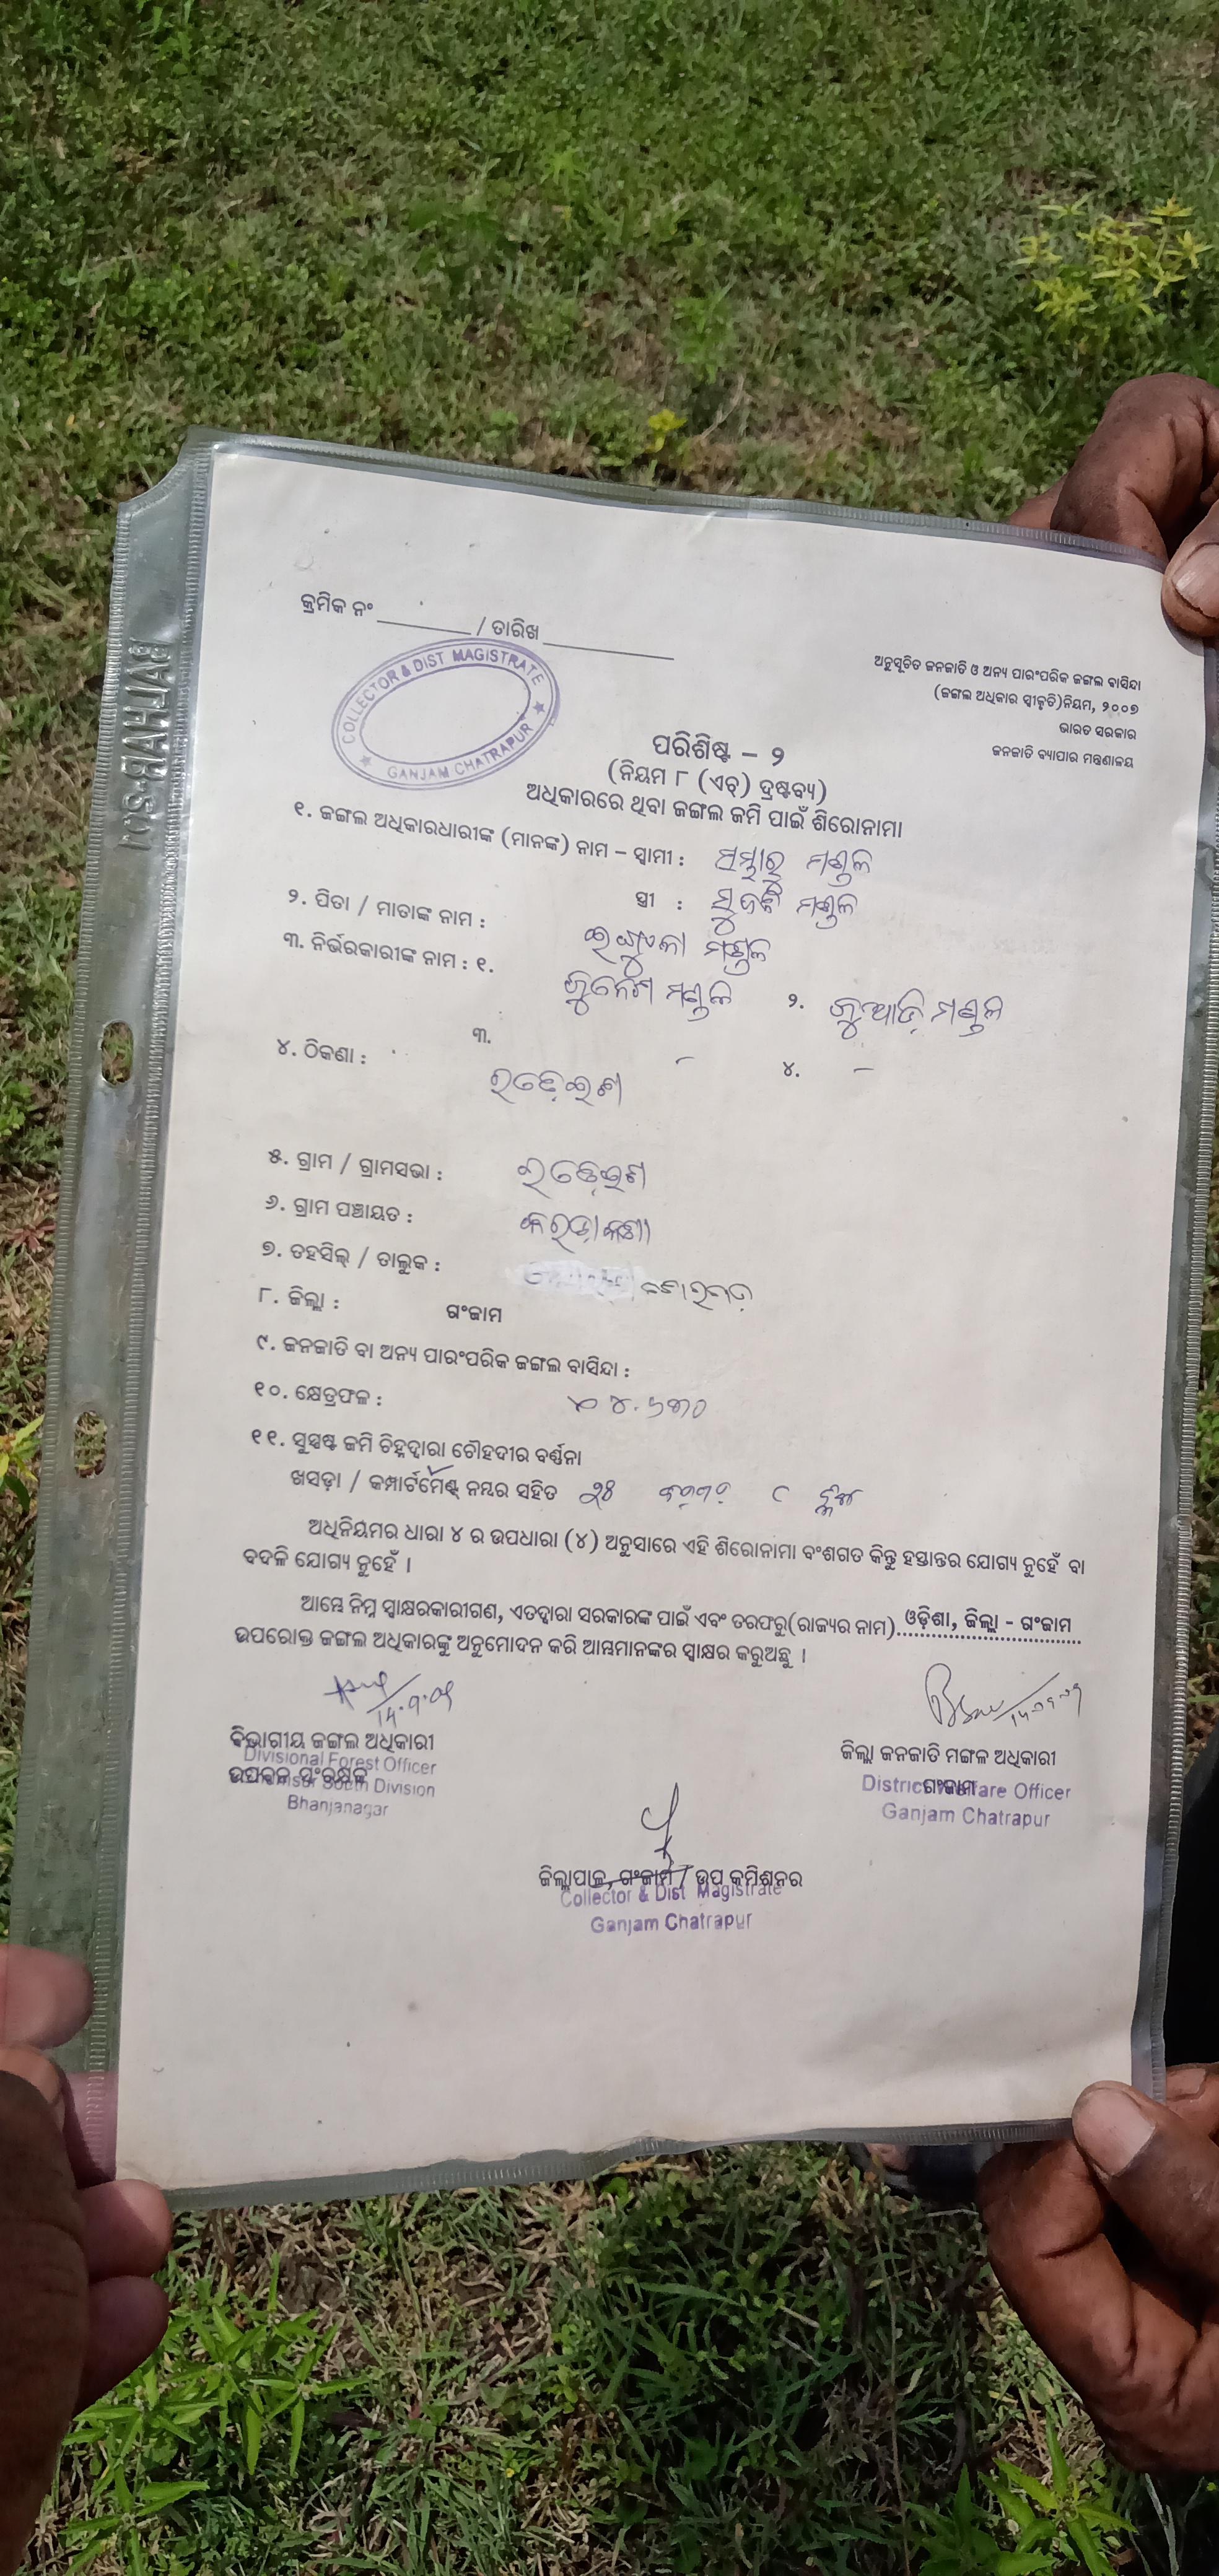 କ୍ରମିକ ନଂ ________ / ତାରିଖ ____________
COLLECTOR & DIST MAGISTRATE
★ GANJAM CHATRAPUR ★
ଅନୁସୂଚିତ ଜନଜାତି ଓ ଅନ୍ୟ ପାରଂପରିକ ଜଙ୍ଗଲ ବାସିନ୍ଦା
(ଜଙ୍ଗଲ ଅଧିକାର ସ୍ୱୀକୃତି)ନିୟମ, ୨୦୦୭
ଭାରତ ସରକାର
ଜନଜାତି ବ୍ୟାପାର ମନ୍ତ୍ରଣାଳୟ
ପରିଶିଷ୍ଟ – ୨
(ନିୟମ ୮ (ଏଚ୍) ଦ୍ରଷ୍ଟବ୍ୟ)
ଅଧିକାରରେ ଥିବା ଜଙ୍ଗଲ ଜମି ପାଇଁ ଶିରୋନାମା
୧. ଜଙ୍ଗଲ ଅଧିକାରଧାରୀଙ୍କ (ମାନଙ୍କ) ନାମ – ସ୍ୱାମୀ : ମଣ୍ଡଳ
ସ୍ତ୍ରୀ : ମଣ୍ଡଳ
୨. ପିତା / ମାତାଙ୍କ ନାମ : ମଣ୍ଡଳ
୩. ନିର୍ଭରକାରୀଙ୍କ ନାମ : ୧. ମଣ୍ଡଳ ୨. ମଣ୍ଡଳ
୩. – ୪. –
୪. ଠିକଣା :
୫. ଗ୍ରାମ / ଗ୍ରାମସଭା :
୬. ଗ୍ରାମ ପଞ୍ଚାୟତ :
୭. ତହସିଲ୍ / ତାଲୁକ :
୮. ଜିଲ୍ଲା : ଗଂଜାମ
୯. ଜନଜାତି ବା ଅନ୍ୟ ପାରଂପରିକ ଜଙ୍ଗଲ ବାସିନ୍ଦା :
୧୦. କ୍ଷେତ୍ରଫଳ :
୧୧. ସୁସ୍ପଷ୍ଟ ଜମି ଚିହ୍ନଦ୍ୱାରା ଚୌହଦୀର ବର୍ଣ୍ଣନା
ଖସଡ଼ା / କମ୍ପାର୍ଟମେଣ୍ଟ ନମ୍ବର ସହିତ
ଅଧିନିୟମର ଧାରା ୪ ର ଉପଧାରା (୪) ଅନୁସାରେ ଏହି ଶିରୋନାମା ବଂଶଗତ କିନ୍ତୁ ହସ୍ତାନ୍ତର ଯୋଗ୍ୟ ନୁହେଁ ବା
ବଦଳି ଯୋଗ୍ୟ ନୁହେଁ ।
ଆମ୍ଭେ ନିମ୍ନ ସ୍ୱାକ୍ଷରକାରୀଗଣ, ଏତଦ୍ୱାରା ସରକାରଙ୍କ ପାଇଁ ଏବଂ ତରଫରୁ(ରାଜ୍ୟର ନାମ) ଓଡ଼ିଶା, ଜିଲ୍ଲା - ଗଂଜାମ
ଉପରୋକ୍ତ ଜଙ୍ଗଲ ଅଧିକାରଙ୍କୁ ଅନୁମୋଦନ କରି ଆମ୍ଭମାନଙ୍କର ସ୍ୱାକ୍ଷର କରୁଅଛୁ ।
ବିଭାଗୀୟ ଜଙ୍ଗଲ ଅଧିକାରୀ
Divisional Forest Officer
ଉପବନ ସଂରକ୍ଷକ
South Division
Bhanjanagar
ଜିଲ୍ଲା ଜନଜାତି ମଙ୍ଗଳ ଅଧିକାରୀ
ଗଂଜାମ
District Welfare Officer
Ganjam Chatrapur
ଜିଲ୍ଲାପାଳ, ଗଂଜାମ / ଉପ କମିଶନର
Collector & Dist Magistrate
Ganjam Chatrapur